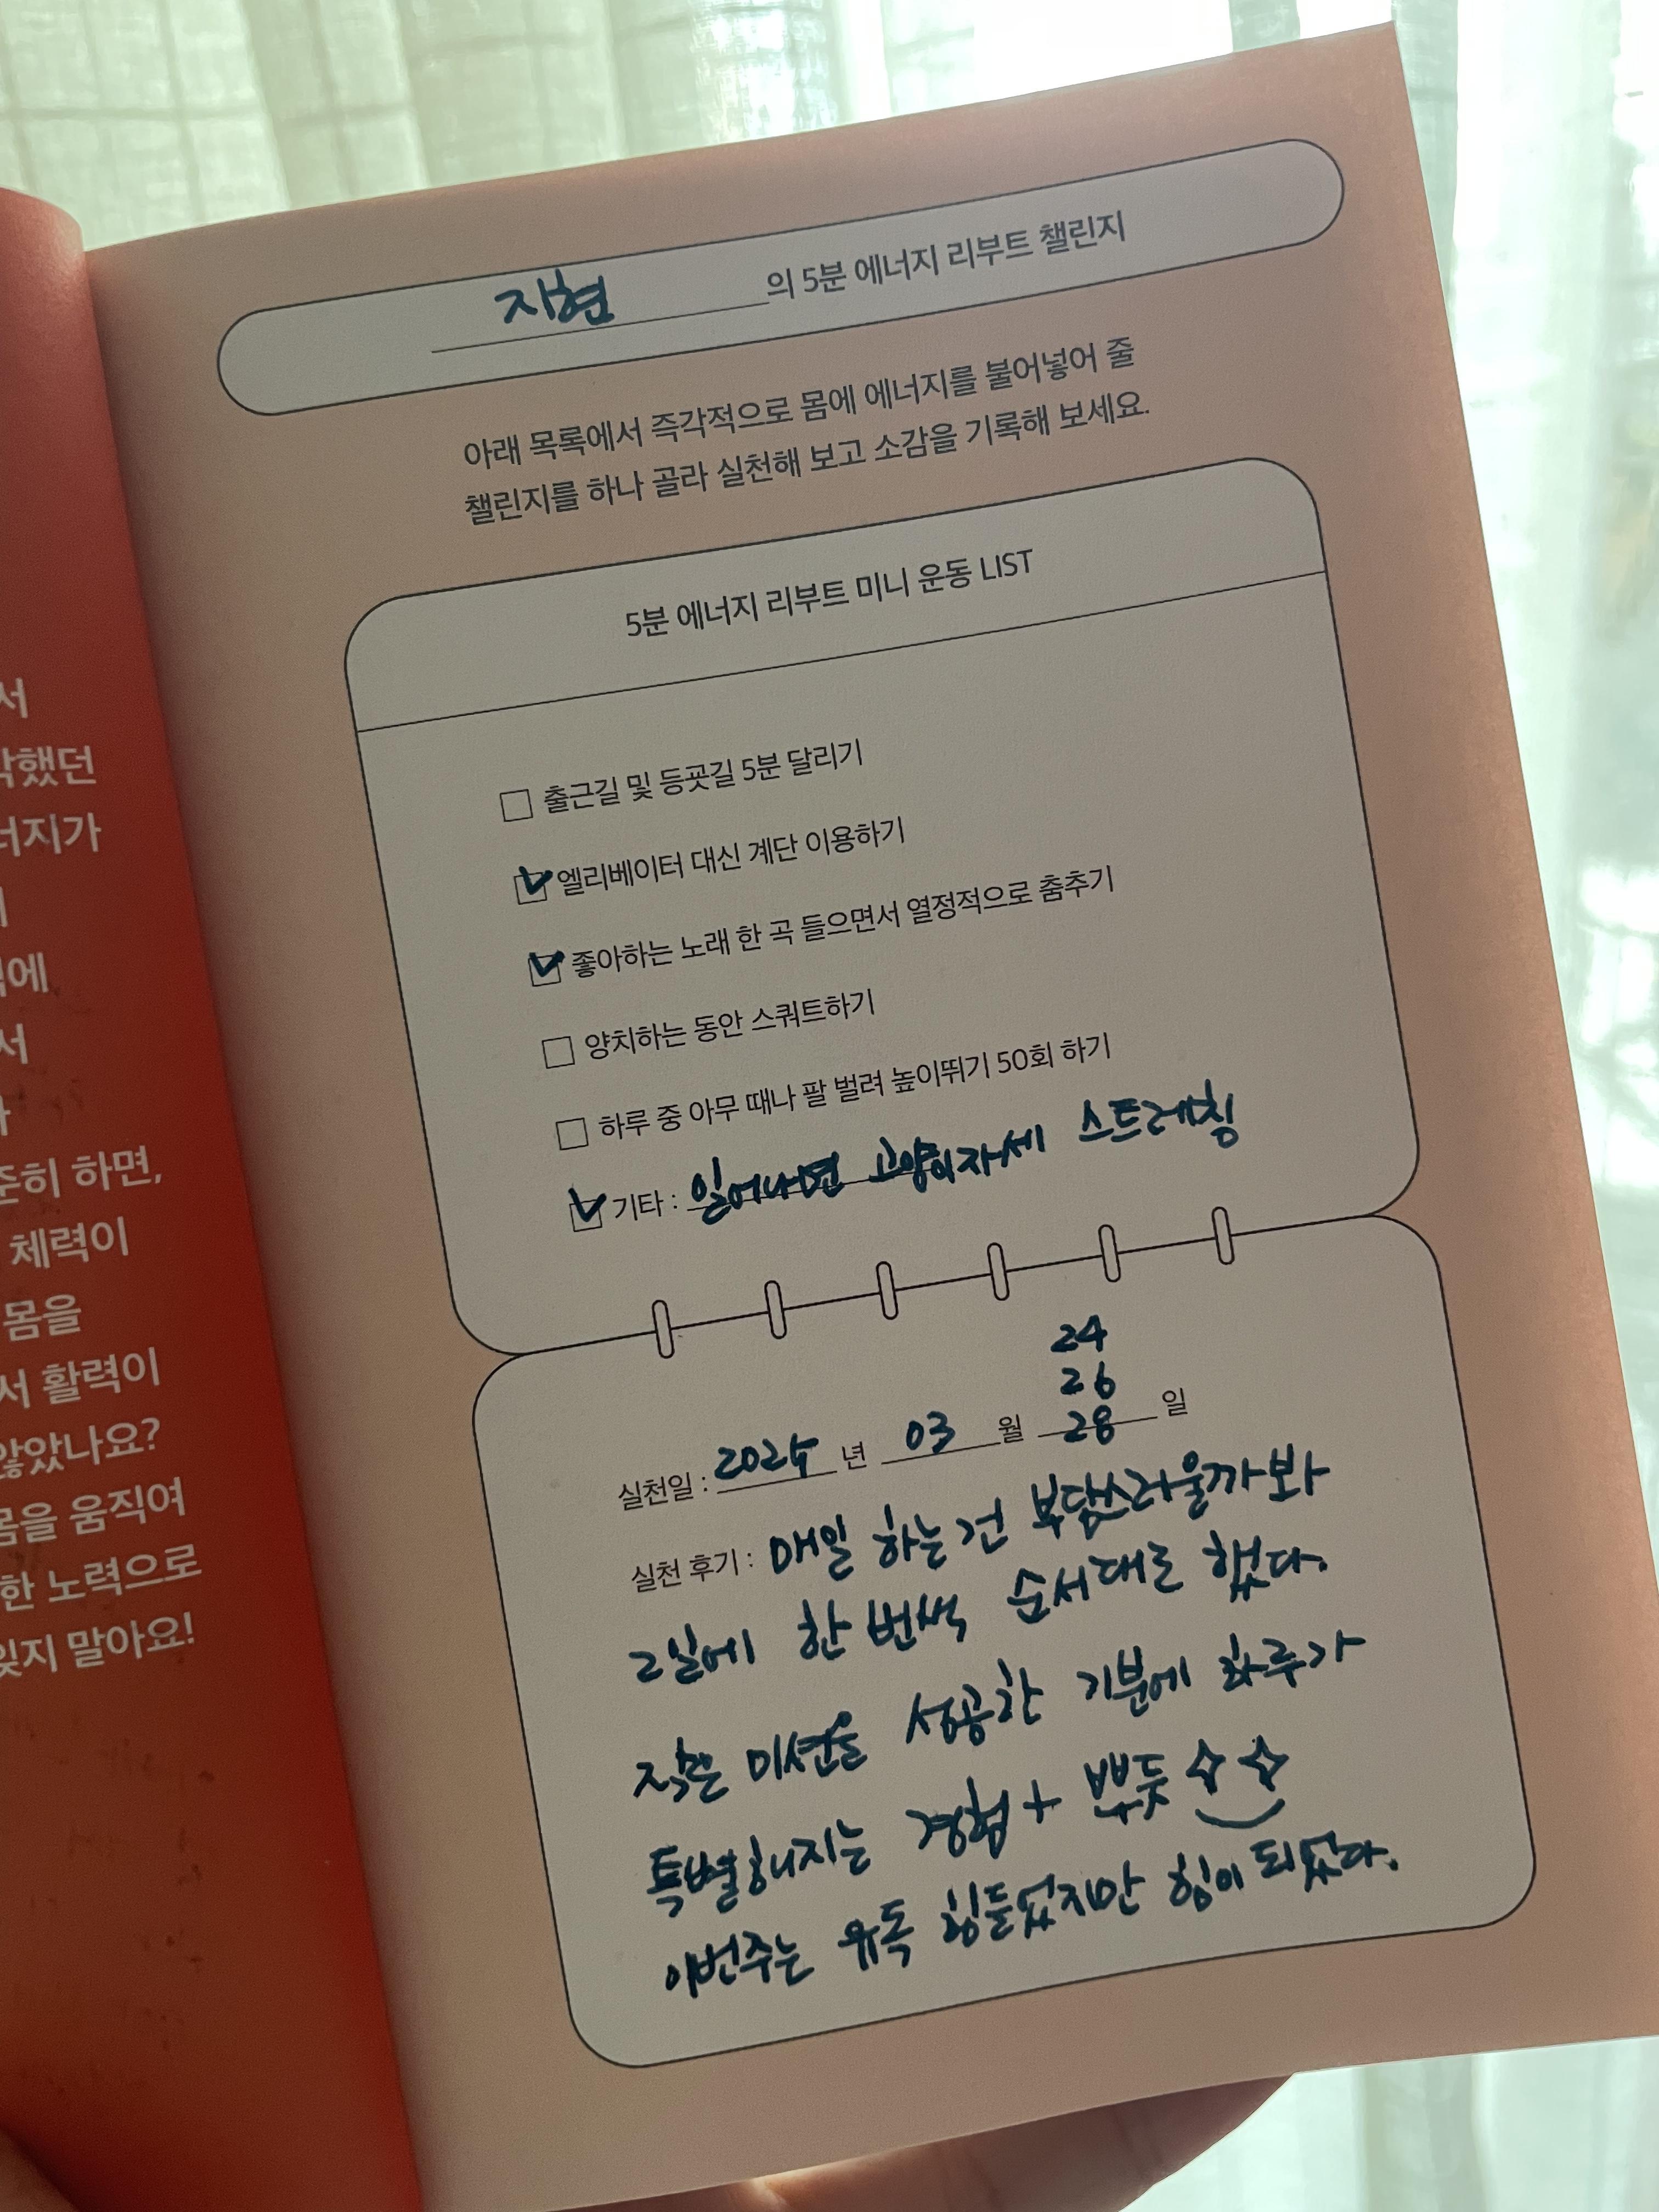 서
각했던
너지가
에
서
준히 하면,
체력이
몸을
서 활력이
않았나요?
몸을 움직여
한 노력으로
잊지 말아요!
지현의 5분 에너지 리부트 챌린지
아래 목록에서 즉각적으로 몸에 에너지를 불어넣어 줄
챌린지를 하나 골라 실천해 보고 소감을 기록해 보세요.
5분 에너지 리부트 미니 운동 LIST
출근길 및 등굣길 5분 달리기
엘리베이터 대신 계단 이용하기
좋아하는 노래 한 곡 들으면서 열정적으로 춤추기
양치하는 동안 스쿼트하기
하루 중 아무 때나 팔 벌려 높이뛰기 50회 하기
기타 : 일어나면 고양이자세 스트레칭
24
26
실천일 : 년 03 월 28 일
실천 후기 : 매일 하는 건 부담스러울까봐
2일에 한 번씩 순서대로 했다.
작은 미션을 성공한 기분에 하루가
특별해지는 경험 + 뿌듯
이번주는 유독 힘들었지만 힘이 되었다.